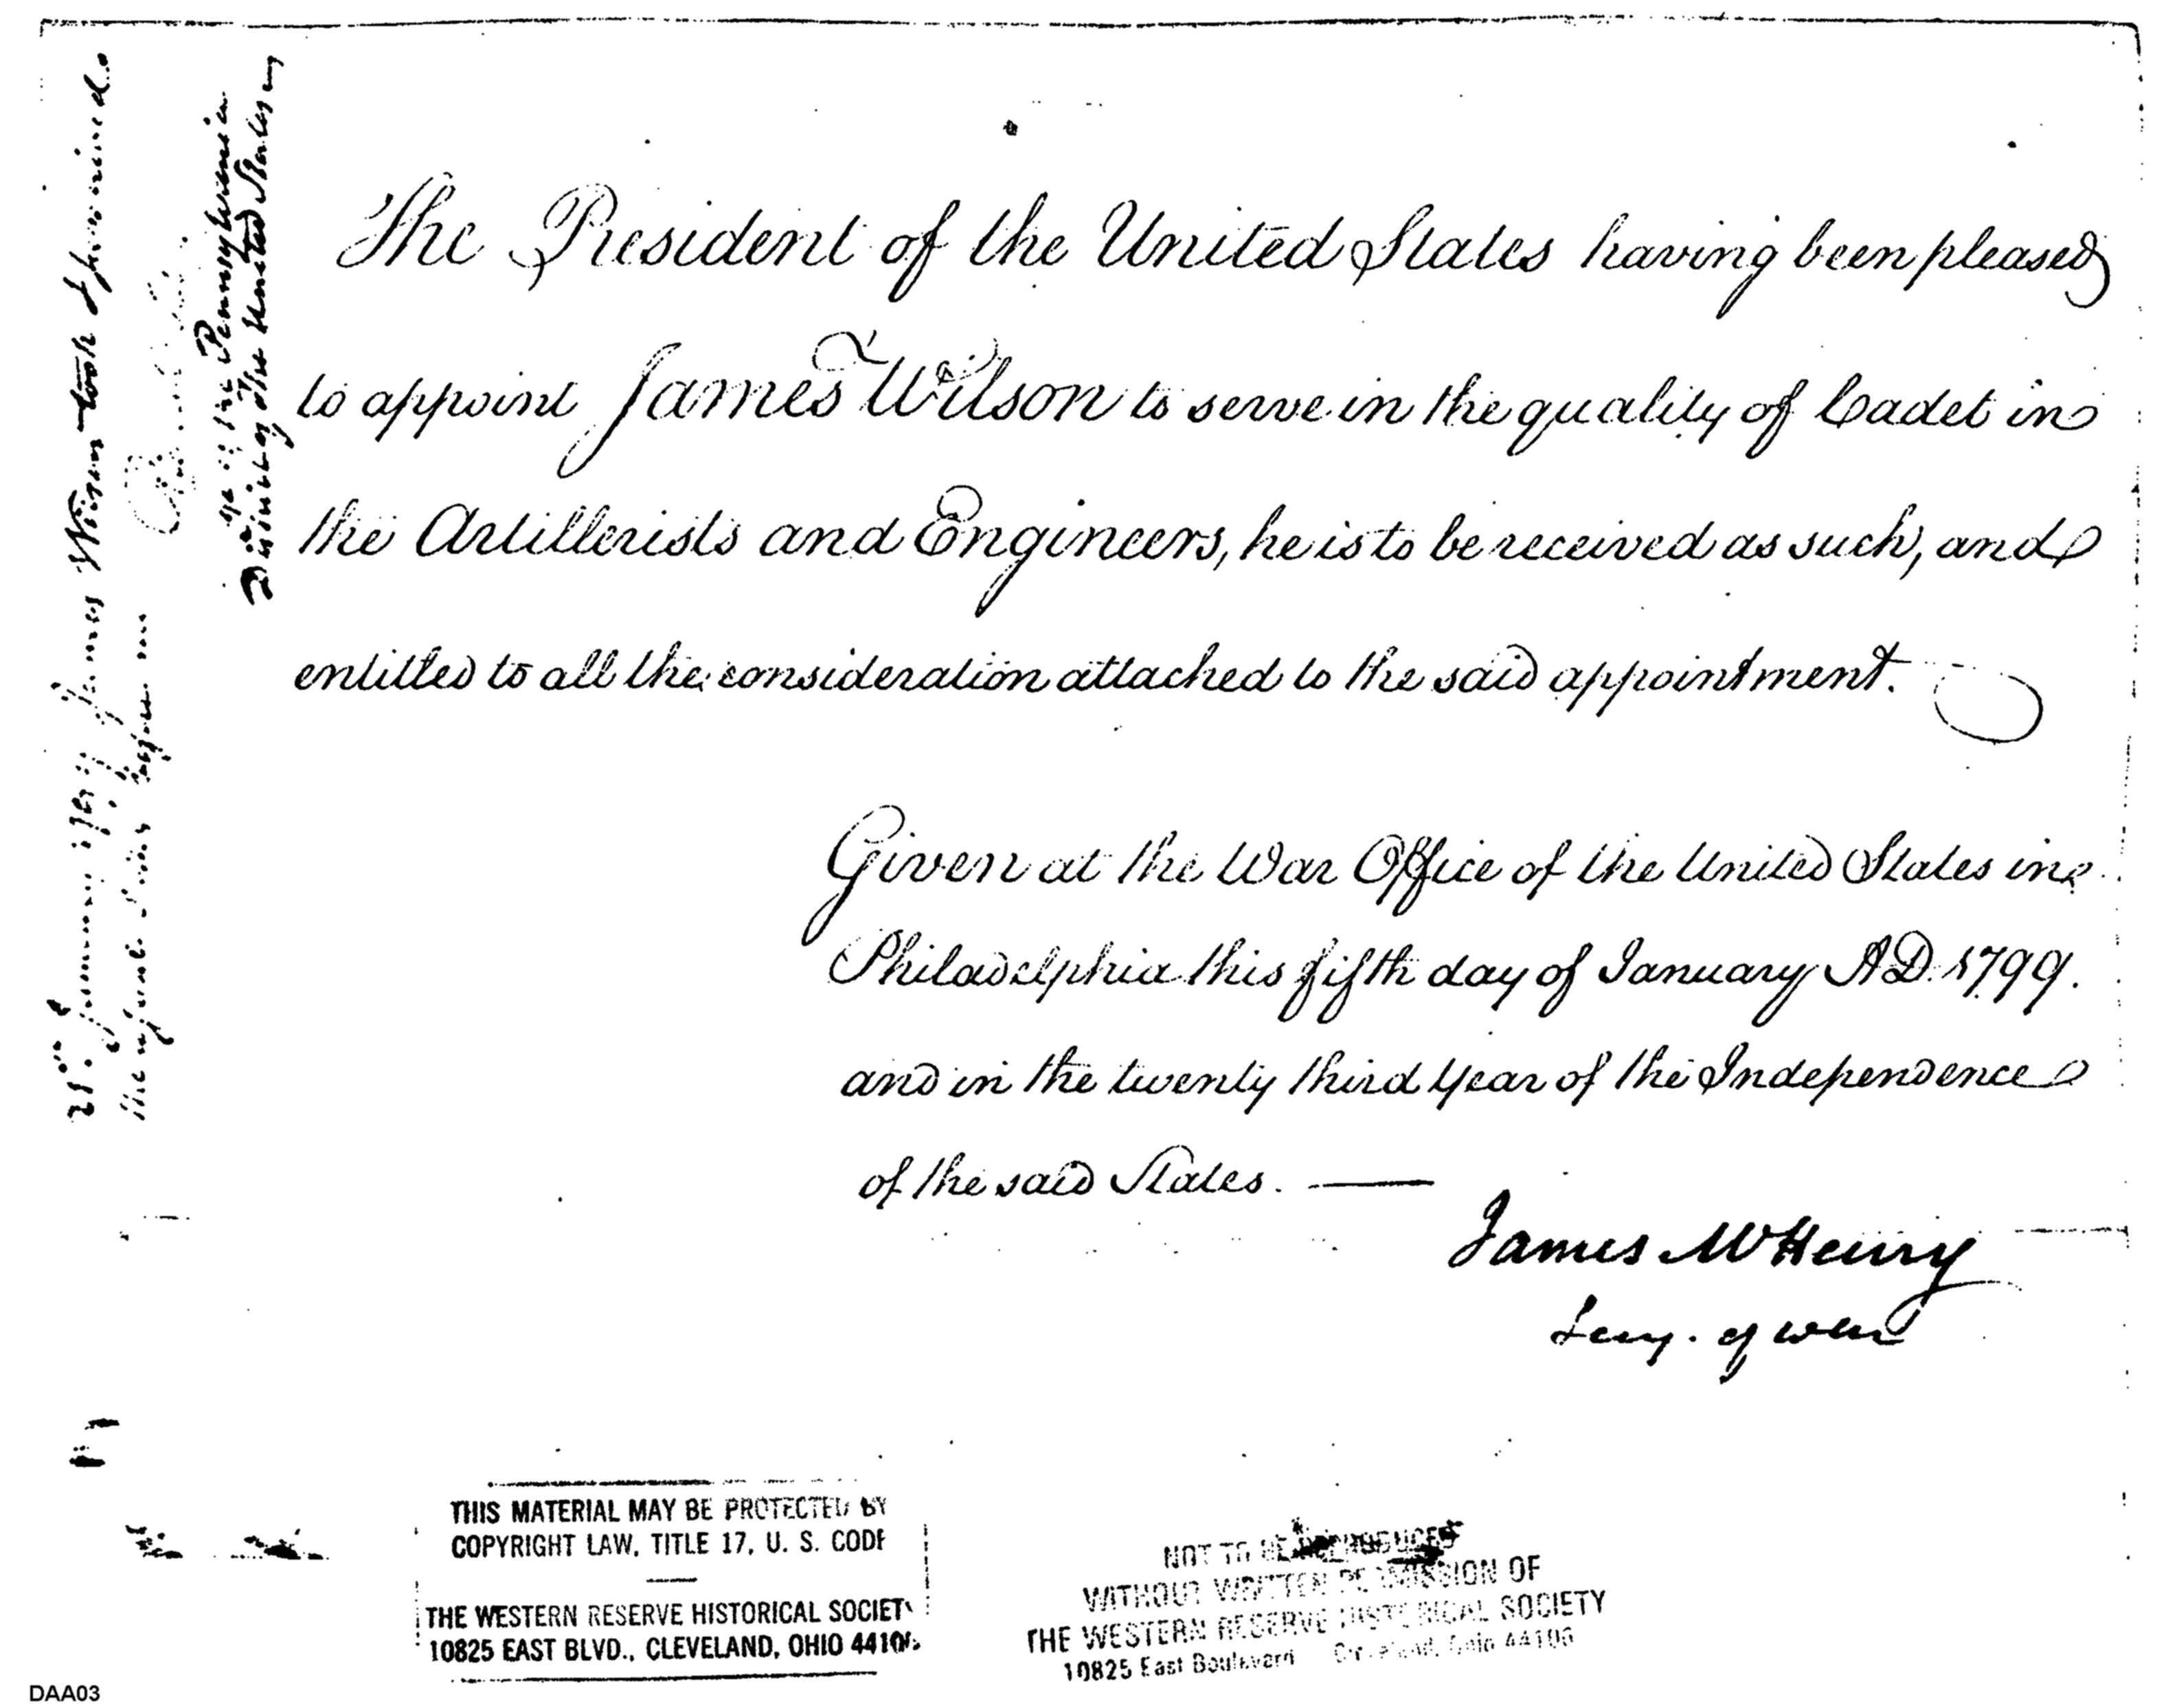 The President of the United States having been pleased
to appoint James Wilson to serve in the quality of Cadet in
the Artillerists and Engineers, he is to be received as such, and
entitled to all the consideration attached to the said appointment.
Given at the War Office of the United States in
Philadelphia this fifth day of January AD. 1799.
and in the twenty third Year of the Independence
of the said States. —
James McHenry
Secy. of war
January 1799 James Wilson took &
the
Pennsylvania
District of the United States
THIS MATERIAL MAY BE PROTECTED BY
COPYRIGHT LAW, TITLE 17, U. S. CODE
THE WESTERN RESERVE HISTORICAL SOCIETY
10825 EAST BLVD., CLEVELAND, OHIO 44106
NOT TO BE REPRODUCED
WITHOUT WRITTEN PERMISSION OF
THE WESTERN RESERVE HISTORICAL SOCIETY
10825 East Boulevard Cleveland, Ohio 44106
DAA03